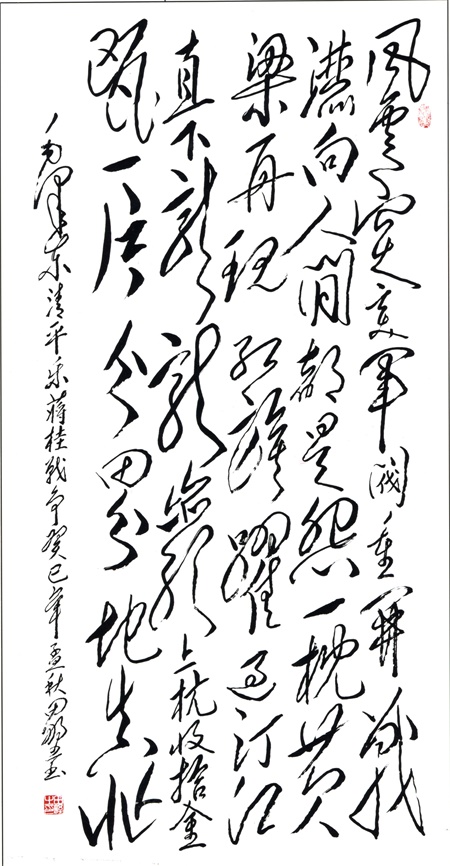 风雲突变军阀重開战
灑向人间都是怨一枕黄
粱再现红旗躍过汀江
直下龍岩上杭收拾金
瓯一片分田分地真忙
毛泽东清平乐蒋桂战争癸巳年孟秋